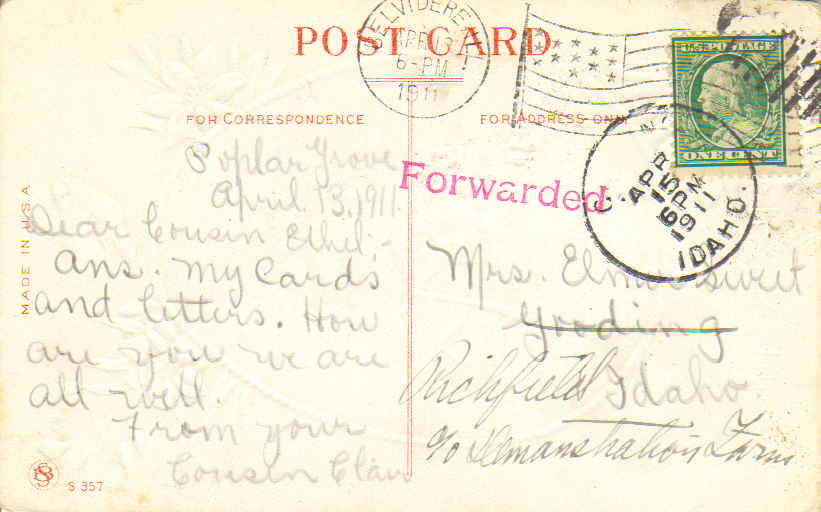 POST CARD
BELVIDERE
APR 13
6-PM
1911
U.S. POSTAGE
ONE CENT
FOR CORRESPONDENCE
FOR ADDRESS ONLY
Forwarded
APR 15
6 PM
1911
IDAHO.
MADE IN U.S.A
Poplar Grove
April 13, 1911.
Dear Cousin Ethel:-
ans. my Cards
and letters. How
are you we are
all well.
From your
Cousin Clair
Mrs. Elmer Sweet
Gooding
Richfield Idaho.
c/o Demanstration Farm
S 357